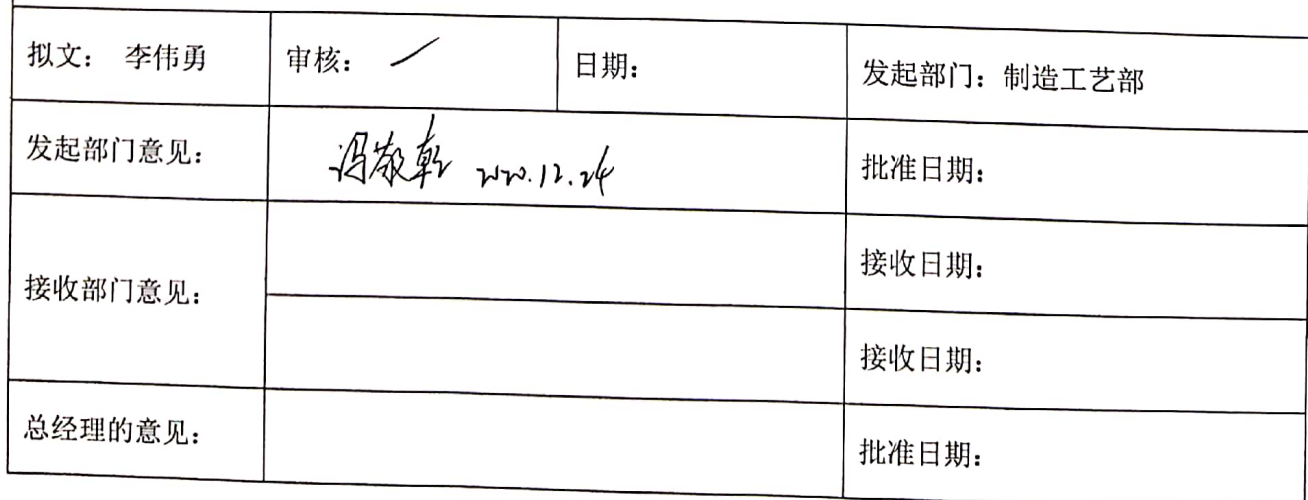 拟文： 李伟勇 审核： 日期： 发起部门：制造工艺部
发起部门意见： 冯敬乾 2020.12.24 批准日期：
接收部门意见： 接收日期：
接收日期：
总经理的意见： 批准日期：